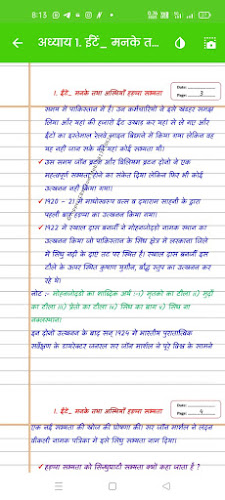 8:15
अध्याय 1. ईंटें_ मनके त...
Date:
Page: 3
1. ईंटें_ मनके तथा अस्थियाँ हड़प्पा सभ्यता
समय में पाकिस्तान में है। उन कर्मचारियों ने इसे खंडहर समझ
लिया और यहां की हजारों ईंट उखाड़ कर यहां से ले गए और
ईंटों का इस्तेमाल रेलवे लाइन बिछाने में किया गया लेकिन वह
यह नहीं जान सके की यहां कोई सभ्यता थी।
✓ उस समय जॉन ब्रटन और विलियम ब्रटन दोनों ने एक
महत्वपूर्ण सभ्यता होने का संकेत दिया लेकिन फिर भी कोई
उत्खनन नहीं किया गया।
✓ 1920 – 21 में माधोस्वरूप वत्स व दयाराम साहनी के द्वारा
पहली बार हड़प्पा का उत्खनन किया गया।
✓ 1922 में राखाल दास बनर्जी ने मोहनजोदड़ो नामक स्थान का
उत्खनन किया जो पाकिस्तान के सिंध क्षेत्र में लरकाना जिले
में सिंधु नदी के दाएं तट पर स्थित है। राखाल दास बनर्जी इस
टीले के ऊपर स्थित कुषाण युगीन, बौद्ध स्तूप का उत्खनन कर
रहे थे।
नोट :- मोहनजोदड़ो का शाब्दिक अर्थ :-i) मृतकों का टीला ii) मुर्दों
का टीला iii) प्रेतों का टीला iv) सिंध का बाग v) सिंध या
नखलिस्तान।
इन दोनों उत्खनन के बाद सन् 1924 में भारतीय पुरातात्विक
सर्वेक्षण के डायरेक्टर जनरल सर जॉन मार्शल ने पूरे विश्व के सामने
Date:
Page: 4
1. ईंटें_ मनके तथा अस्थियाँ हड़प्पा सभ्यता
एक नई सभ्यता की खोज की घोषणा की। सर जॉन मार्शल ने लंदन
वीकली नामक पत्रिका में इसे सिंधु सभ्यता नाम दिया।
✓ हड़प्पा सभ्यता को सिन्धुघाटी सभ्यता क्यों कहा जाता है ?